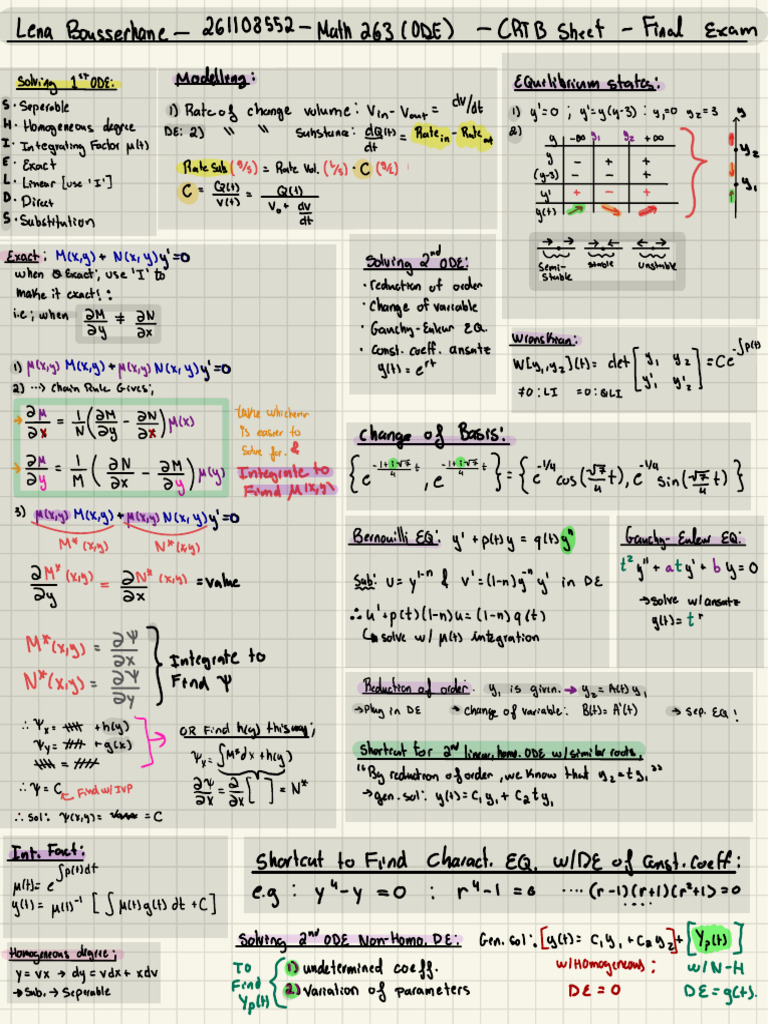 Lena Bousserhane - 261108552 - Math 263 (ODE) - CRIB Sheet - Final Exam
Solving 1st ODE:
S. Seperable
H. Homogeneous degree
I. Integrating Factor μ(t)
E. Exact
L. Linear [use 'I']
D. Direct
S. Substitution
Modelling:
1) Rate of change volume: Vin - Vout = dV/dt
DE: 2) " " substance: dQ(t)/dt = Rate in - Rate out
Rate Sub (g/s) = Rate Vol. (L/s) · C (g/L)
C = Q(t)/V(t) = Q(t)/(V0 + dv/dt)
Equilibrium states:
1) y'=0 ; y'=y(y-3) : y1=0 y2=3
2)
y -∞ y1 y2 +∞
y - + +
(y-3) - - +
y' + - +
y(t)
y
y2
y1
Semi-stable stable unstable
Exact: M(x,y) + N(x,y)y' = 0
make it exact! :
i.e; when ∂M/∂y ≠ ∂N/∂x
1) μ(x,y) M(x,y) + μ(x,y) N(x,y)y' = 0
2) ⇢ Chain Rule Gives;
∂μ/∂x = 1/N (∂M/∂y - ∂N/∂x) μ(x)
∂μ/∂y = 1/M (∂N/∂x - ∂M/∂y) μ(y)
take whichever
is easier to
solve for. &
Integrate to
Find μ(x,y)
3) μ(x,y) M(x,y) + μ(x,y) N(x,y)y' = 0
M*(x,y) N*(x,y)
∂M*/∂y (x,y) = ∂N*/∂x (x,y) = value
M*(x,y) = ∂Ψ/∂x
N*(x,y) = ∂Ψ/∂y
Integrate to
Find Ψ
∴ Ψx = + h(y)
Ψy = + g(x)
∴ Ψ = C Find w/ IVP
∴ sol: Ψ(x,y) = = C
OR Find h(y) this way;
Ψx = ∫M*dx + h(y)
∂Ψ/∂x = ∂/∂x [ ] = N*
Solving 2nd ODE:
· reduction of order
· Change of variable
· Cauchy-Euler EQ.
· Const. coeff. ansatz
y(t) = e^rt
Wronskian:
W[y1,y2](t) = det [y1 y2 y'1 y'2] = Ce^-∫p(t)
≠0 : LI =0 :
Change of Basis:
{e^(-1+i√7)/4 t, e^(-1+i√7)/4 t} = {e^-1/4 cos(√7/4 t), e^-1/4 sin(√7/4 t)}
Bernouilli EQ: y' + p(t)y = q(t)y^n
Sub: u = y^1-n & v' = (1-n)y^-n y' in DE
∴ u' + p(t)(1-n)u = (1-n)q(t)
solve w/ μ(t) integration
Cauchy-Euler EQ:
t²y'' + aty' + by = 0
→ solve w/ ansatz
y(t) = t^r
Reduction of order: y1 is given. → y2 = A(t) y1
→ Plug in DE → change of variable: B(t) = A'(t) → Sep. EQ!
Shortcut for 2nd linear, homo. ODE w/ similar roots,
"By reduction of order, we know that y2 = ty1"
→ gen. sol: y(t) = C1y1 + C2ty1
Int. Fact:
μ(t) = e^∫p(t)dt
y(t) = μ(t)^-1 [∫μ(t)g(t)dt + C]
Homogeneous degree;
y = vx → dy = vdx + xdv
→ Sub. → Seperable
Shortcut to Find Charact. EQ. w/ DE of const. coeff:
e.g : y⁴ - y = 0 : r⁴ - 1 = 0 .... (r-1)(r+1)(r²+1) = 0
Solving 2nd ODE Non-Homo. DE: Gen. sol: [y(t) = C1y1 + C2y2] + [Yp(t)]
To Find Yp(t)
1) undetermined coeff.
2) Variation of parameters
w/ Homogeneous:
DE = 0
w/ N-H
DE = g(t).